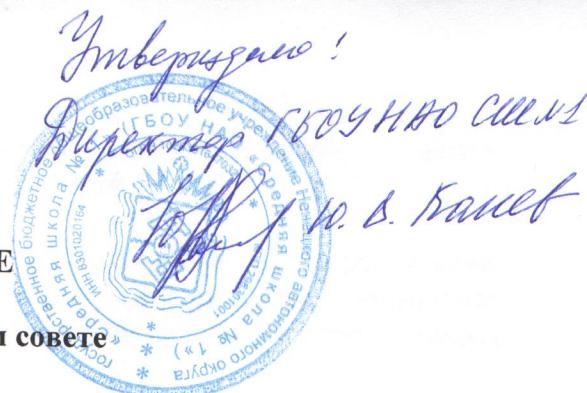 Утверждаю!
Директор ГБОУ НАО СШ №1
Ю. В. Канев
государственное бюджетное общеобразовательное учреждение Ненецкого автономного округа
«Средняя школа № 1»
(ГБОУ НАО «Средняя школа № 1»)
ИНН8301020164
Е
совете